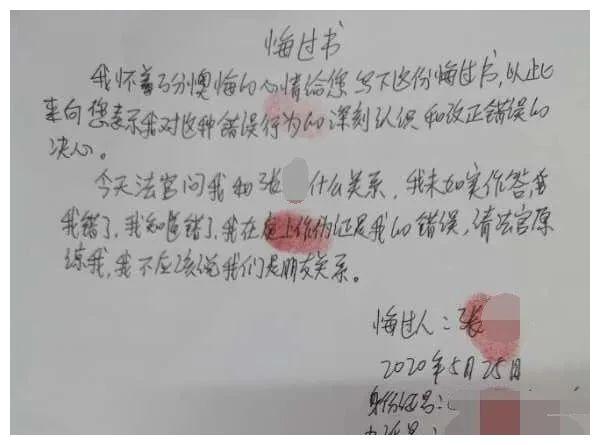 悔过书
我怀着万分懊悔的心情给您写下这份悔过书,以此
来向您表示我对这种错误行为的深刻认识和改正错误的
决心。
今天法官问我和张 什么关系,我未如实作答,
我错了,我知道错了,我在庭上作伪证是我的错误,请法官原
谅我,我不应该说我们是朋友关系。
悔过人:张
2020年5月25日
身份证号: